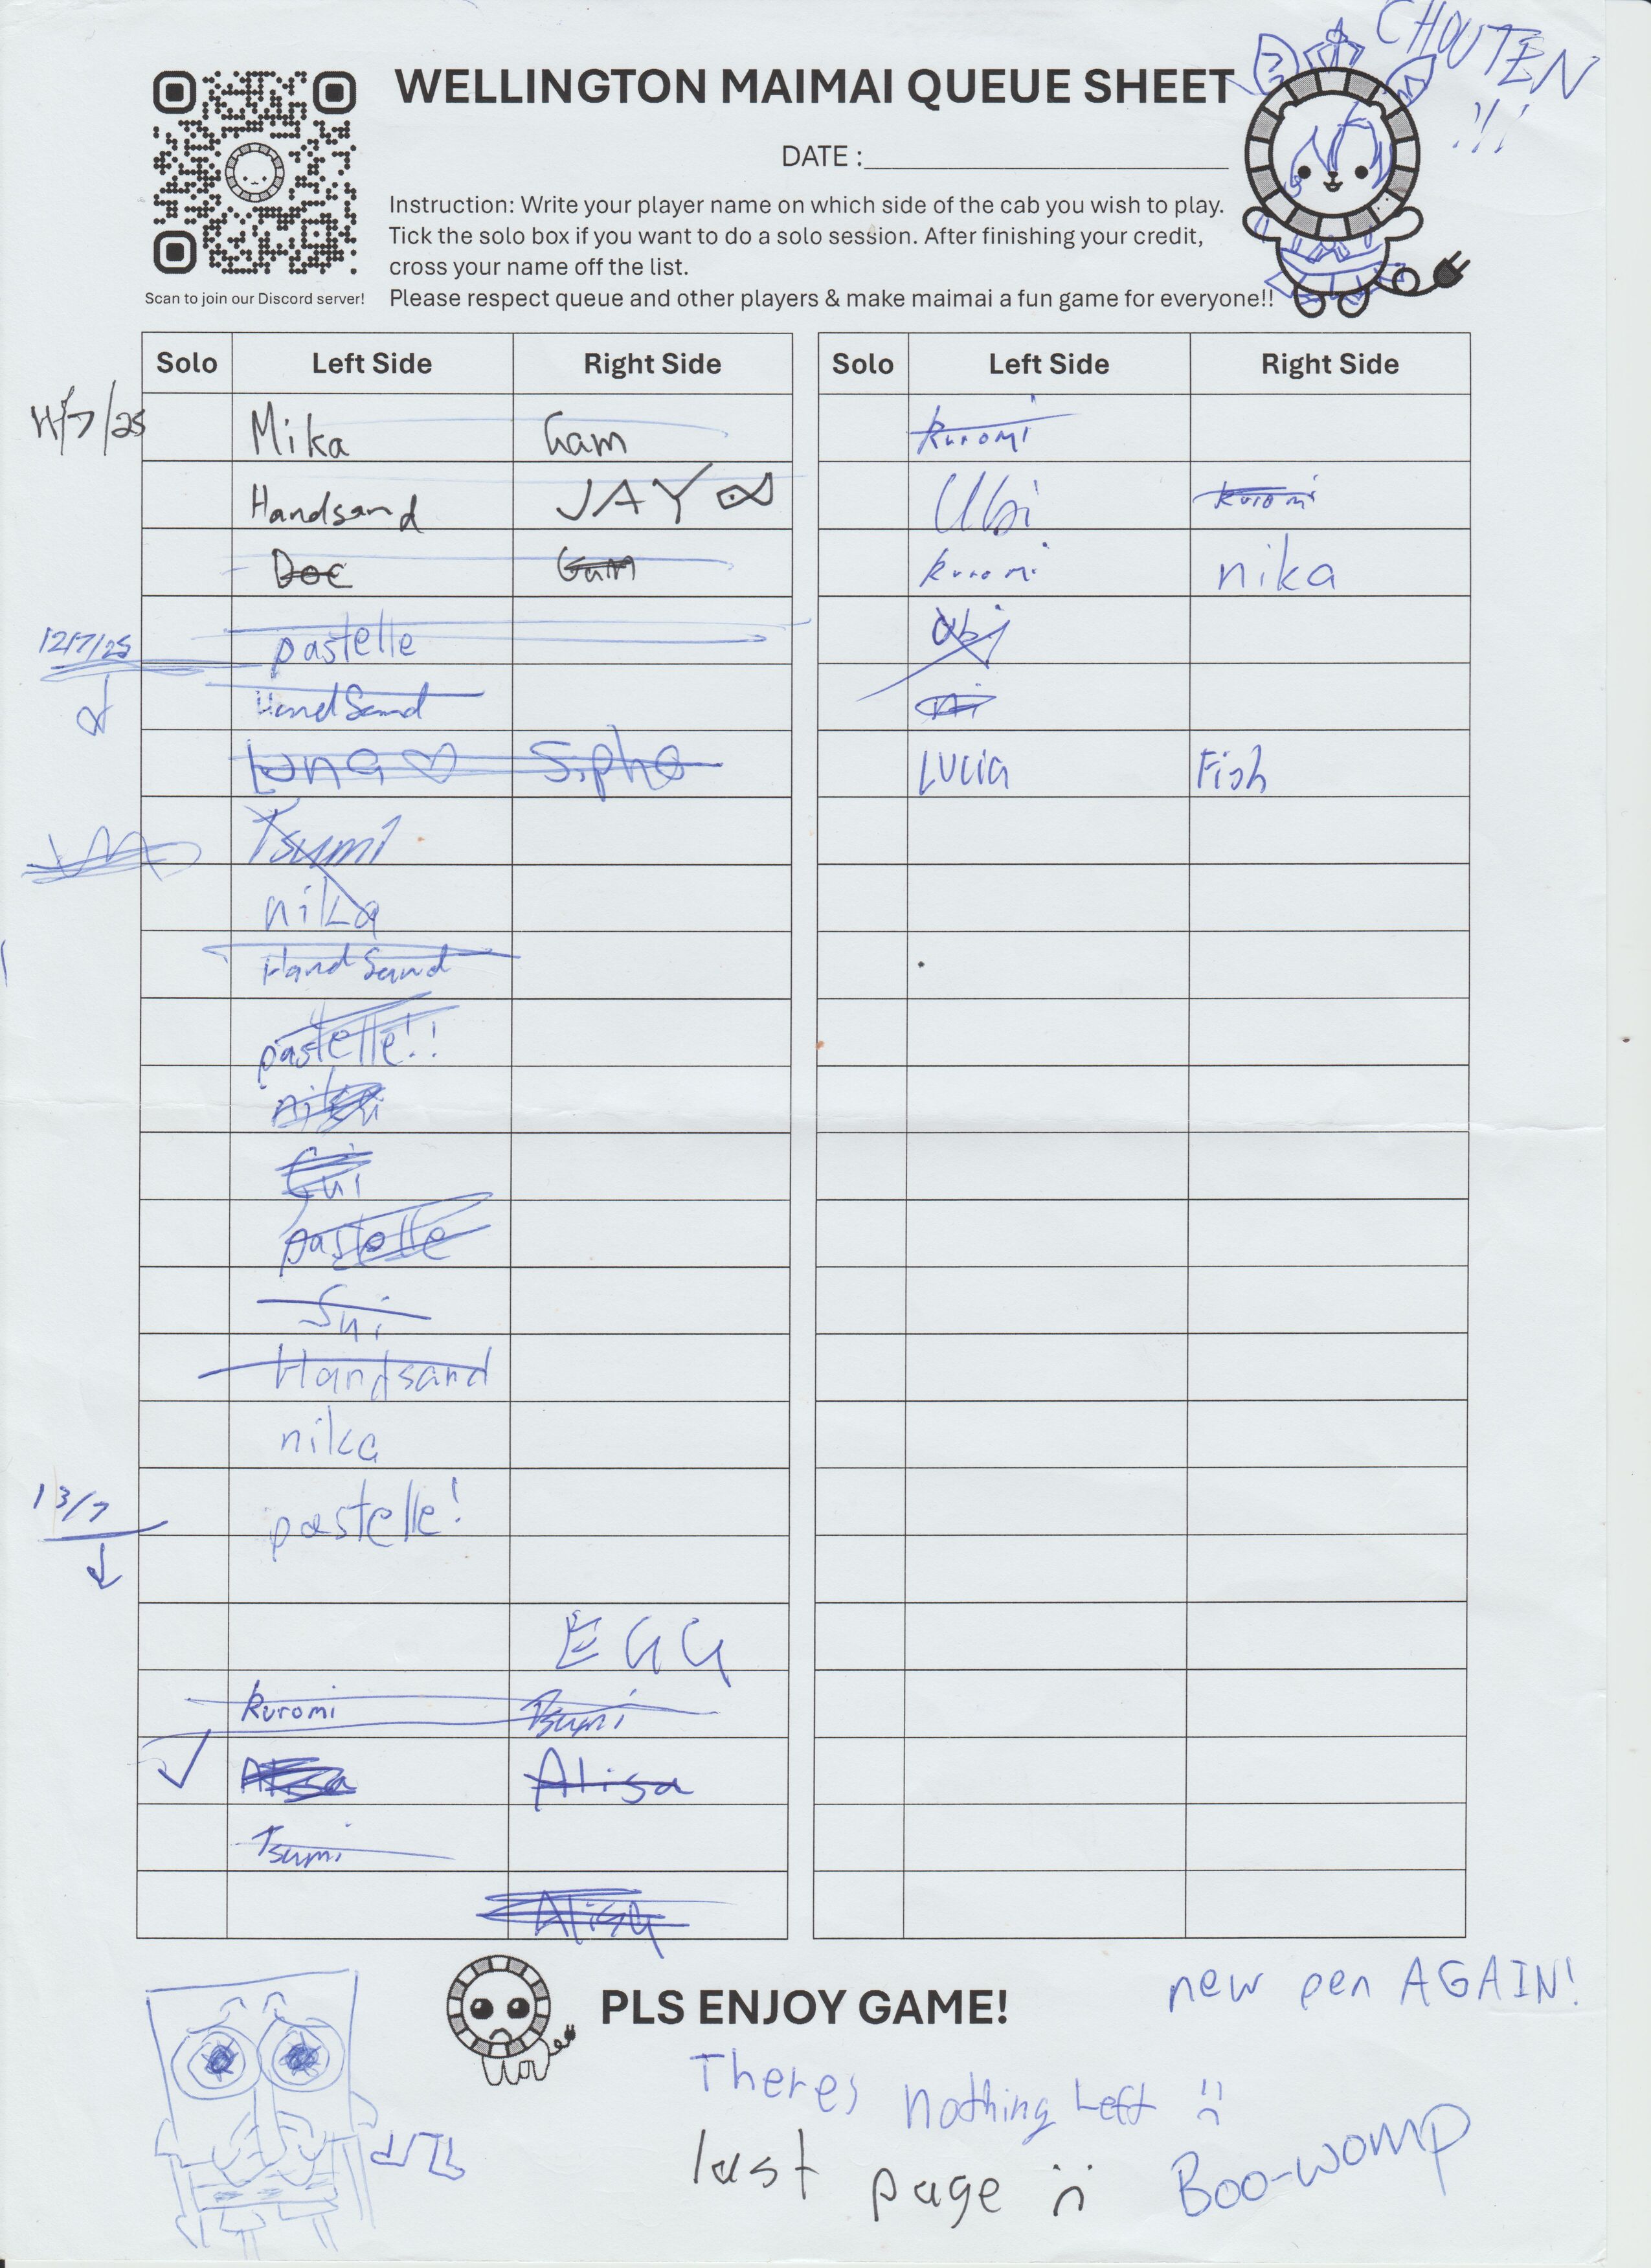 CHOUTEN
!!!
WELLINGTON MAIMAI QUEUE SHEET
DATE :
Instruction: Write your player name on which side of the cab you wish to play.
Tick the solo box if you want to do a solo session. After finishing your credit,
cross your name off the list.
Please respect queue and other players & make maimai a fun game for everyone!!
Scan to join our Discord server!
Solo Left Side Right Side
11/7/25 Mika Gam
Handsand JAY
Doc Gam
12/7/25 pastelle
HandSand
Luna ♡ Sipho
Tsumi
nika
HandSand
pastelle!!
Sui
pastelle
Sui
Handsand
nika
13/7 pastelle!
EGG
kuromi Tsumi
✓ Alisa Alisa
Tsumi
Alisa
Solo Left Side Right Side
kuromi
Ubi kuromi
kuromi nika
Ubi
Lucia Fish
PLS ENJOY GAME!
new pen AGAIN!
Theres nothing Left :(
last page :(
Boo-womp